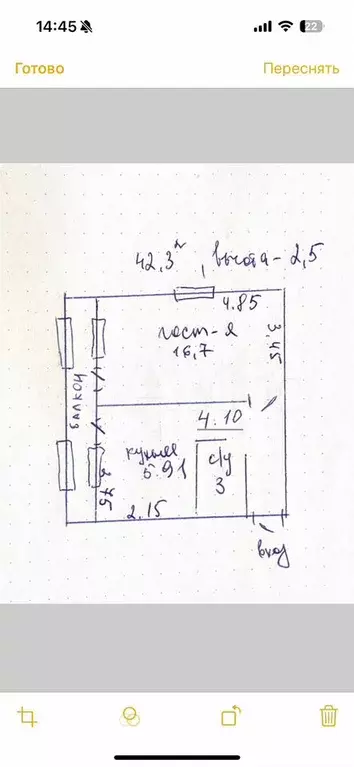 14:45
22
Готово
Переснять
42,3 м , высота - 2,5
4.85
гост-я
16,7
3,45
балкон
4.10
кухня
5.91
с/у
3
2.15
вход